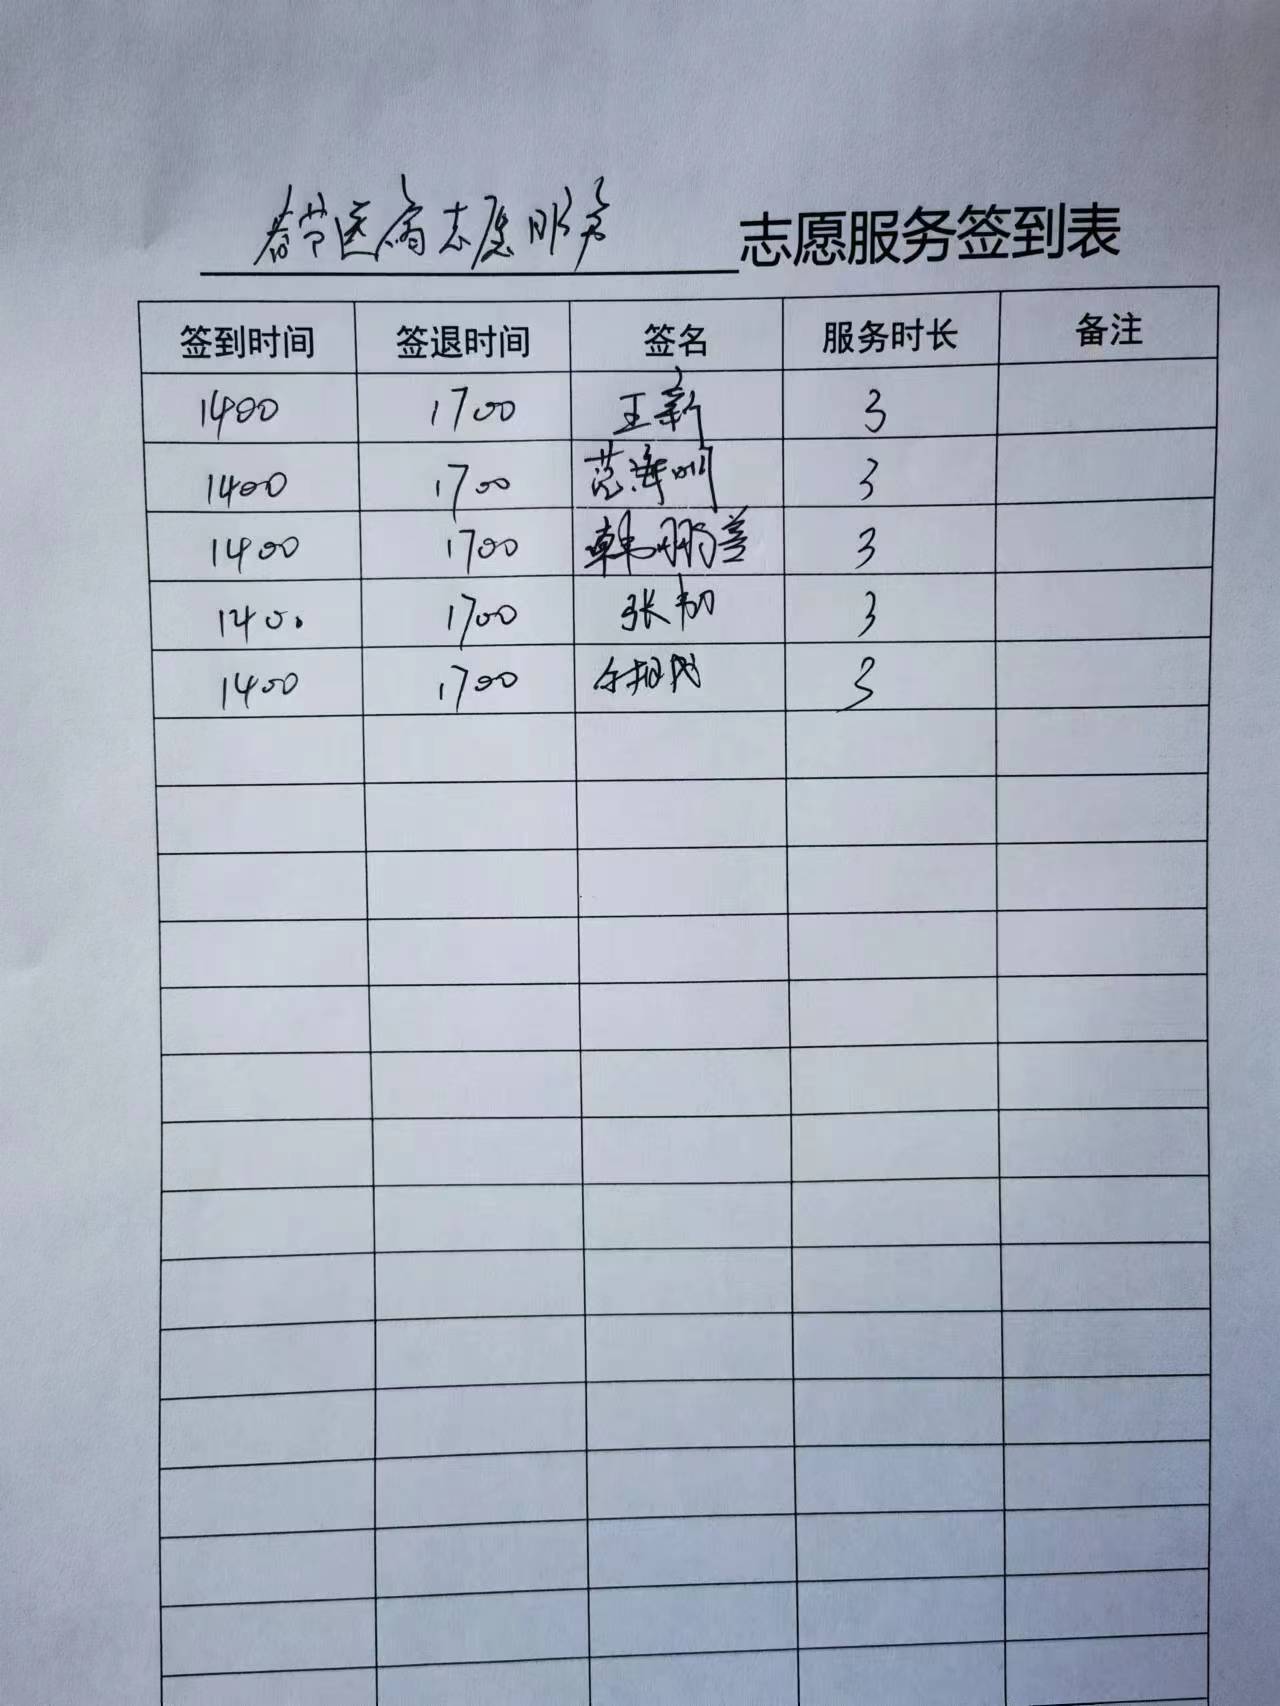 春节医院志愿服务 志愿服务签到表
签到时间 签退时间 签名 服务时长 备注
1400 1700 王新 3
1400 1700 范海 3
1400 1700 韩鹏善 3
1400 1700 张韧 3
1400 1700 3